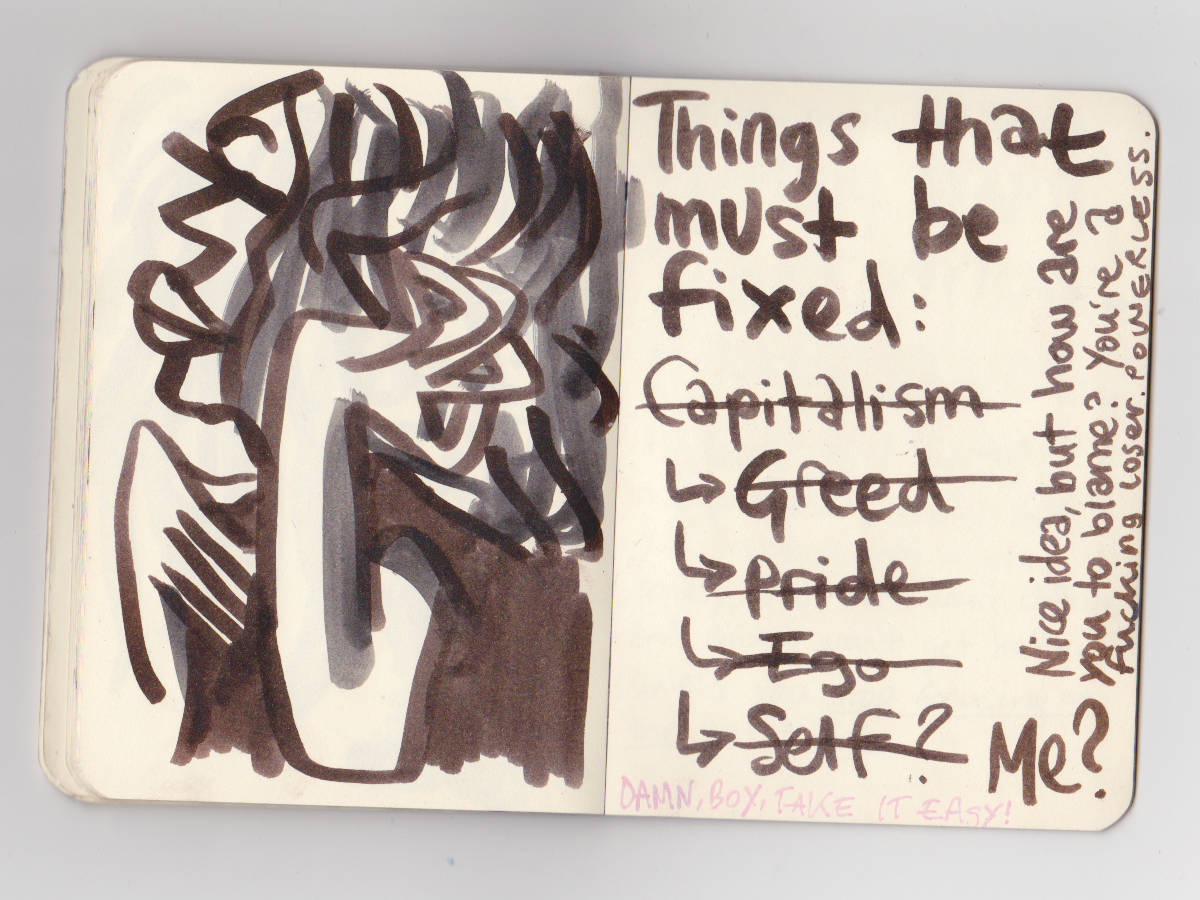 Things that
must be
fixed:
Capitalism
↳ Greed
↳ pride
↳ Ego
↳ Self?
Me?
Nice idea, but how are
you to blame? You're a
fucking loser. POWERLESS.
DAMN, BOY, TAKE IT EASY!